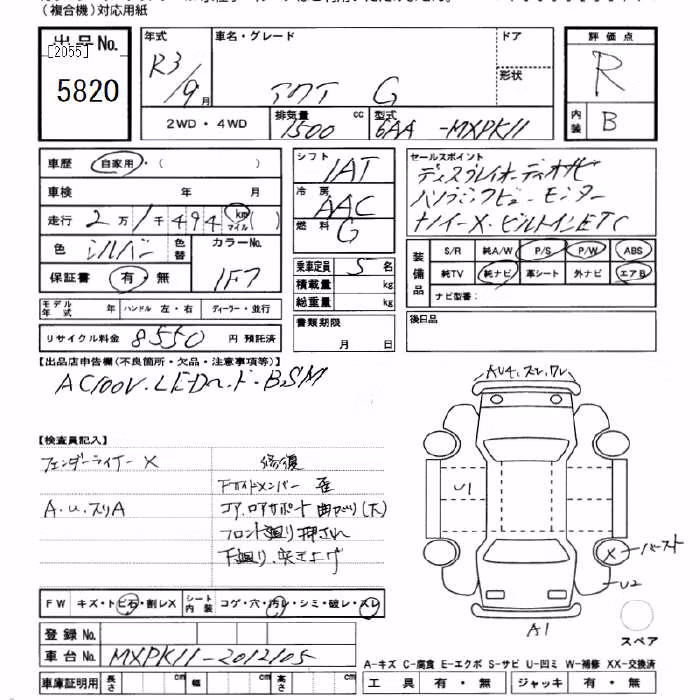 (複合機)対応用紙
出品No.
[2055]
5820
年式
R3/9月
車名・グレード
アクア G
ドア
形状
評価点
R
内装 B
2WD・4WD
排気量 1500 cc
型式 6AA-MXPK11
車歴 自家用・( )
車検 年 月
走行 2万1千494 km マイル ( )
色 シルバー
色替
カラーNo. 1F7
保証書 有・無
シフト IAT
冷房 AAC
燃料 G
乗車定員 5 名
積載量 kg
総重量 kg
セールスポイント
ディスプレイオーディオナビ
パノラミックビューモニター
ナノイーX・ビルトインETC
装備品
S/R 純A/W P/S P/W ABS
純TV 純ナビ 革シート 外ナビ エアB
ナビ型番:
モデル年式 年 ハンドル 左・右 ディーラー・並行
リサイクル料金 8550 円 預託済
書類期限
月 日
後日品
【出品店申告欄(不良箇所・欠品・注意事項等)】
AC100V. LED. BSM
【検査員記入】
フェンダーライナー X
修復
Fサイドメンバー 歪
A.U.スリA
コア.ロアサポート曲がり(大)
フロント廻り押され
下廻り.突き上げ
AU4.
U1
X バースト
U2
A1
スペア
FW キズ・トビ石・割レX
シート内装 コゲ・穴・汚レ・シミ・破レ・スレ
登録No.
車台No. MXPK11-2012105
車庫証明用 長さ cm 幅 cm 高さ cm
A-キズ C-腐食 E-エクボ S-サビ U-凹ミ W-補修 XX-交換済
工具 有・無 ジャッキ 有・無